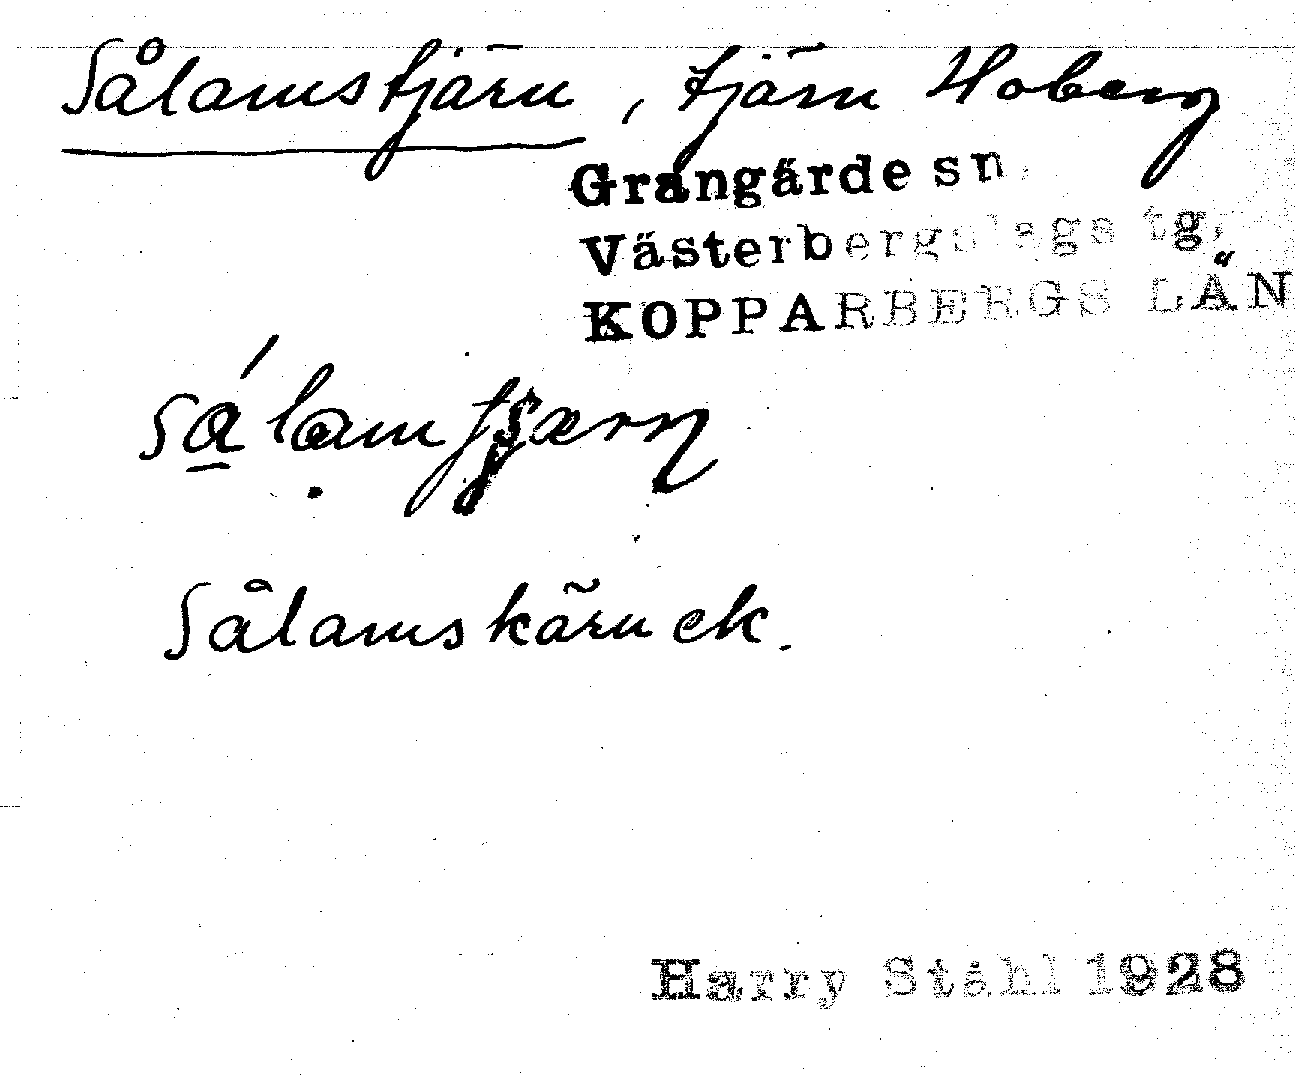 Sålamstjärn, tjärn Hoberg
Grangärde sn,
Västerbergslags tg,
KOPPARBERGS LÄN
Sålamskärn ek.
Harry Ståhl 1928